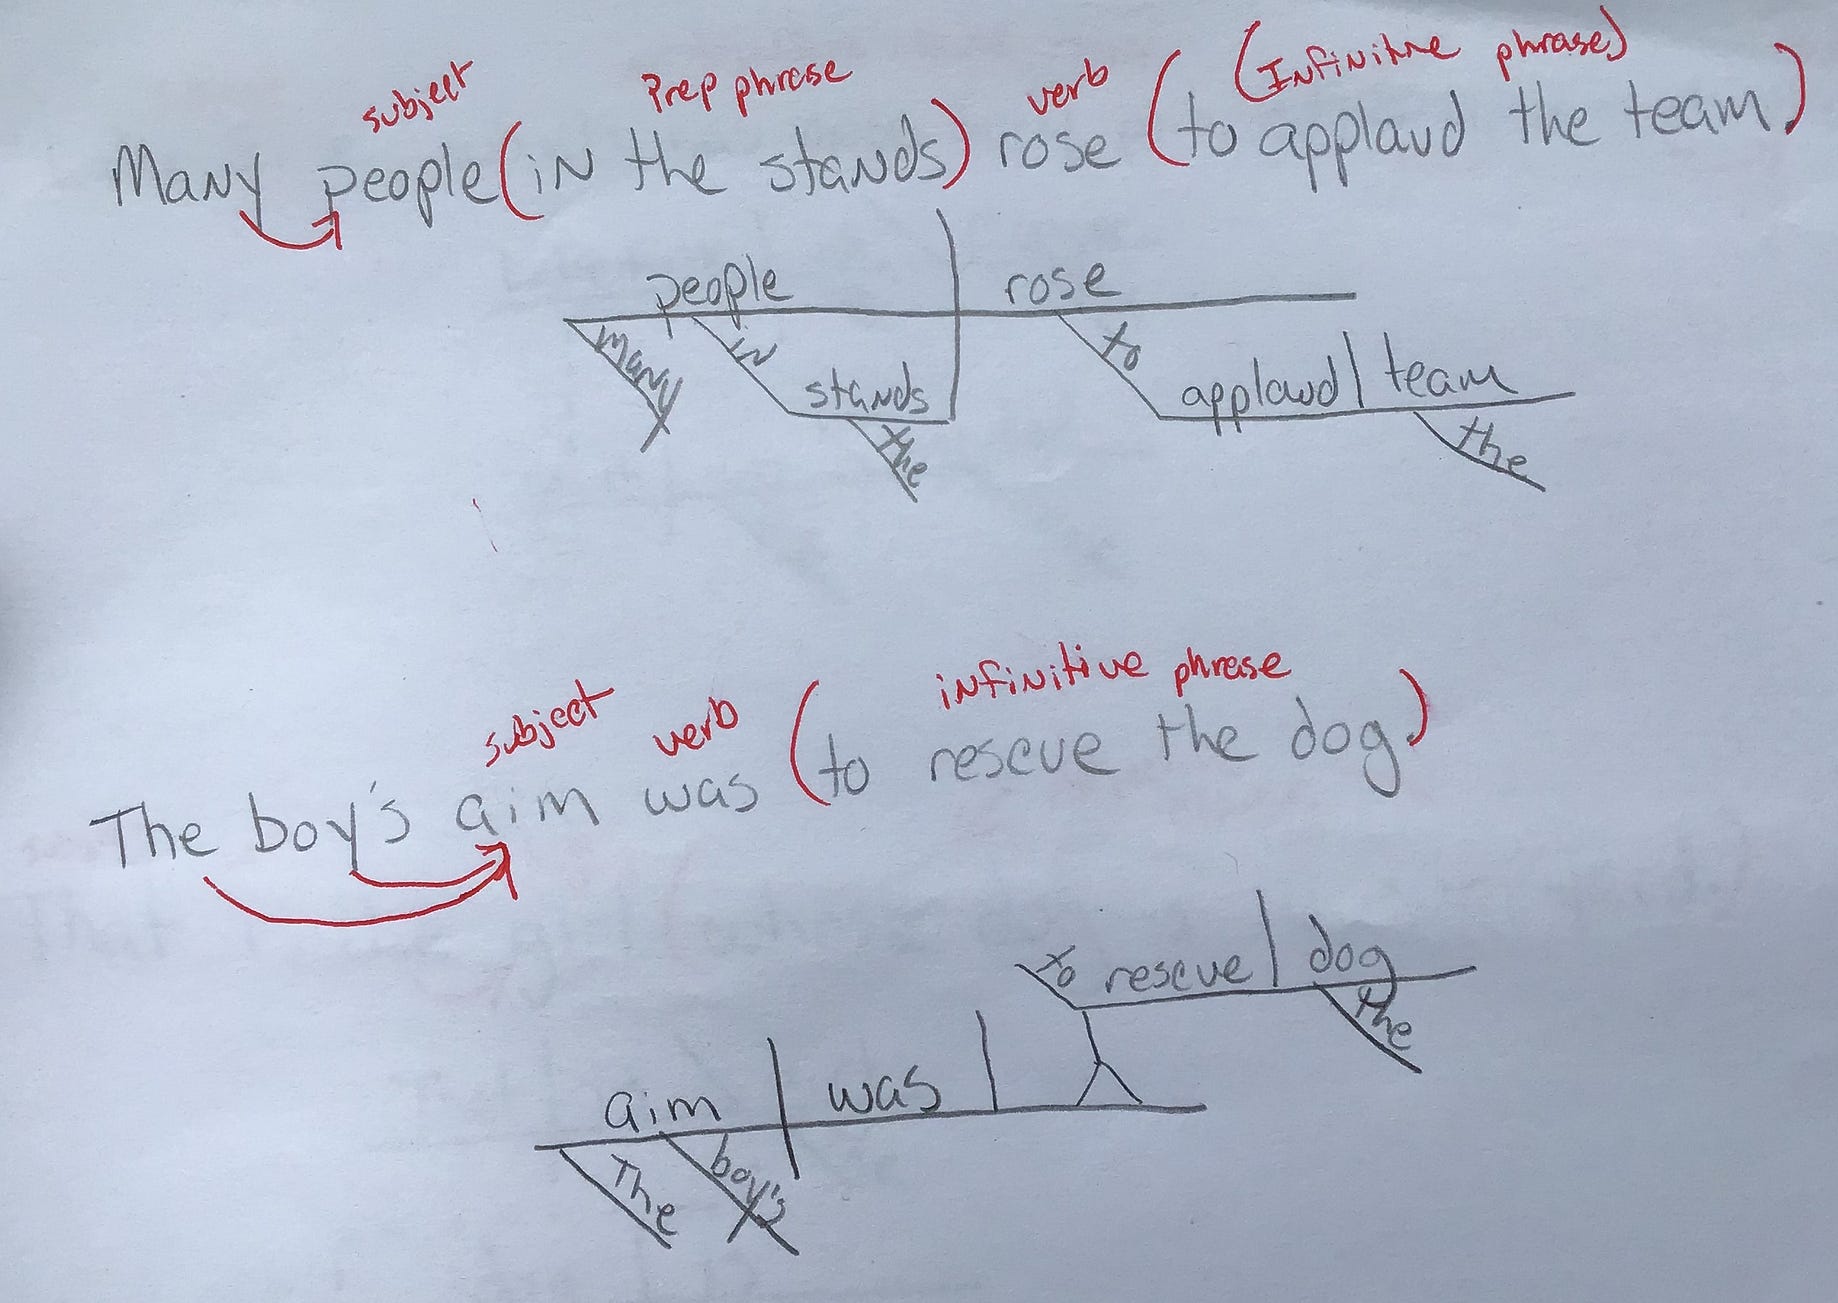 subject Prep phrase verb (Infinitive phrase)
Many people (in the stands) rose (to applaud the team.)
people rose
Many in to
stands applaud team
the the
subject verb infinitive phrase
The boy's aim was (to rescue the dog.)
to rescue dog
the
aim was
The boy's